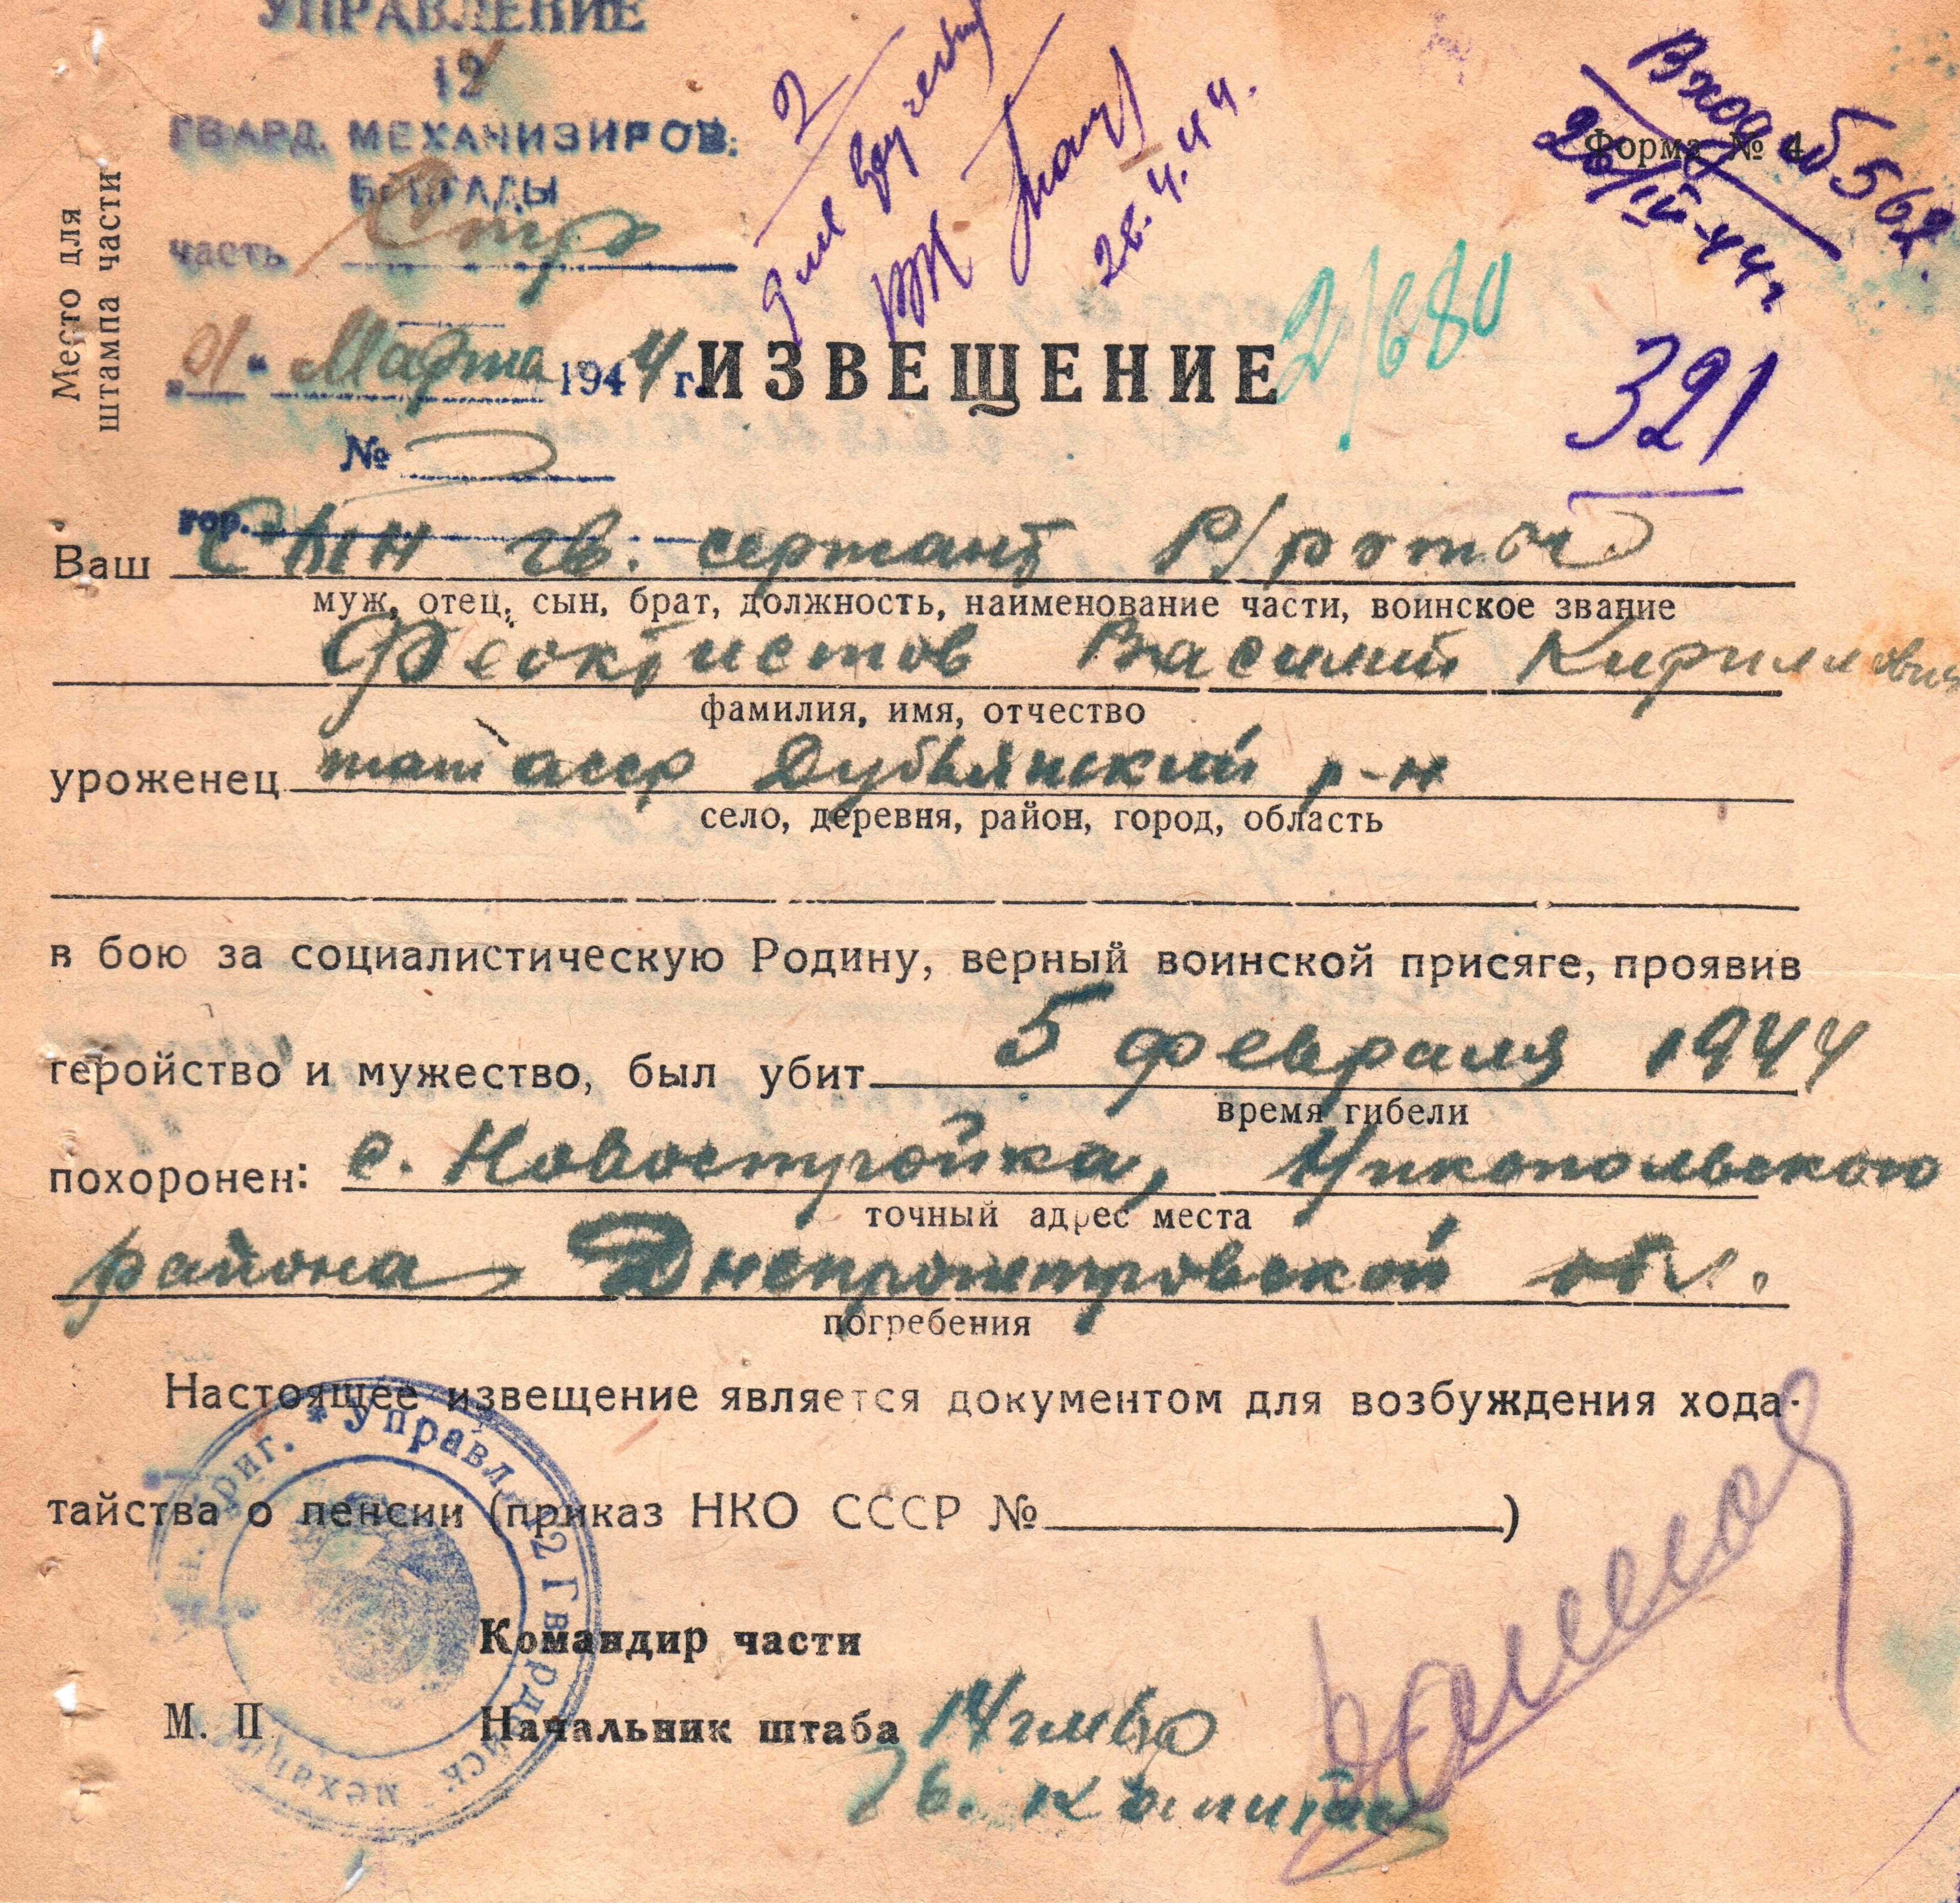 УПРАВЛЕНИЕ
12
ГВАРД. МЕХАНИЗИРОВ.
БРИГАДЫ
часть
Место для
штампа части
Вход № 562.
26/IV-44 г
Форма № 4
28.4.44.
2/680
321
"01" Марта 1944 г.
ИЗВЕЩЕНИЕ
№
гор.
Ваш сын гв. сержант Р/роты
муж, отец, сын, брат, должность, наименование части, воинское звание
Феоктистов Василий Кириллович
фамилия, имя, отчество
уроженец тат асср Дубьянский р-н
село, деревня, район, город, область
в бою за социалистическую Родину, верный воинской присяге, проявив
геройство и мужество, был убит 5 февраля 1944
время гибели
похоронен: с. Новостройка, Никопольского
точный адрес места
района Днепропетровской обл.
погребения
Настоящее извещение является документом для возбуждения хода-
тайства о пенсии (приказ НКО СССР № )
* Управл. 12 Гвардейск. механиз. бриг.
Командир части
М. П
Начальник штаба
гв. капитан